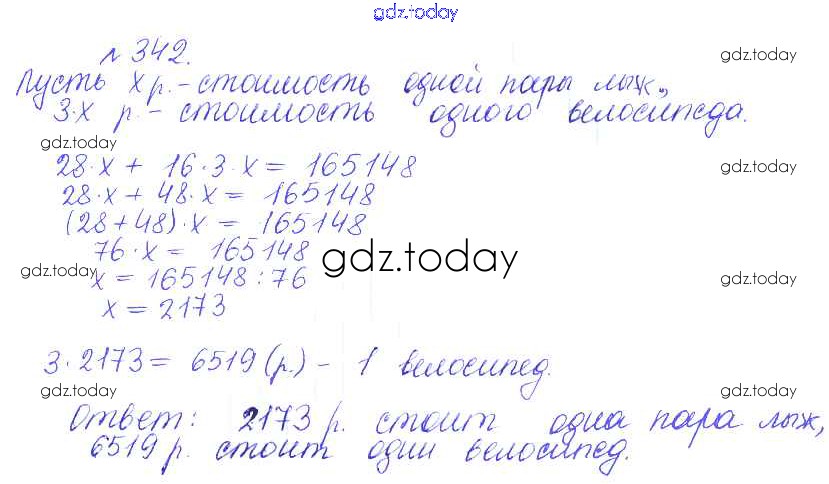 gdz.today
№ 342.
gdz.today
Пусть x р. - стоимость одной пары лыж,
3·x р. - стоимость одного велосипеда.
gdz.today
28·x + 16·3·x = 165148
gdz.today
28·x + 48·x = 165148
(28+48)·x = 165148
76·x = 165148
gdz.today
gdz.today
x = 165148 : 76
gdz.today
x = 2173
3·2173 = 6519 (р.) - 1 велосипед.
gdz.today
gdz.today
Ответ: 2173 р. стоит одна пара лыж,
6519 р. стоит один велосипед.